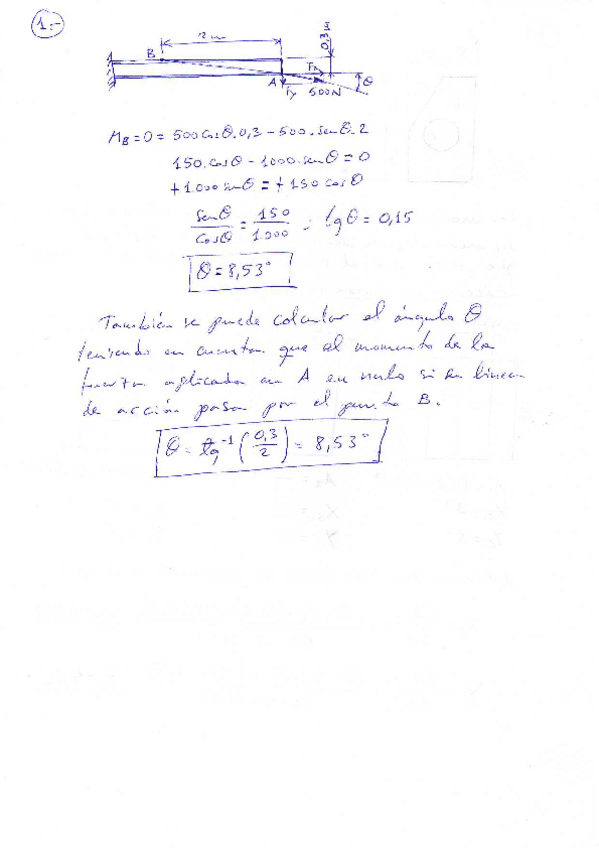 1.-
2 m
0,3 m
B
A
Fx
Fy
500N
θ
M_B = 0 = 500 cos θ · 0,3 - 500 · sen θ · 2
150 · cos θ - 1000 · sen θ = 0
+ 1.000 sen θ = + 150 cos θ
sen θ / cos θ = 150 / 1.000 ; tg θ = 0,15
θ = 8,53°
También se puede calcular el ángulo θ
teniendo en cuenta que el momento de la
fuerza aplicada en A es nulo si su línea
de acción pasa por el punto B.
θ = tg⁻¹ (0,3 / 2) = 8,53°